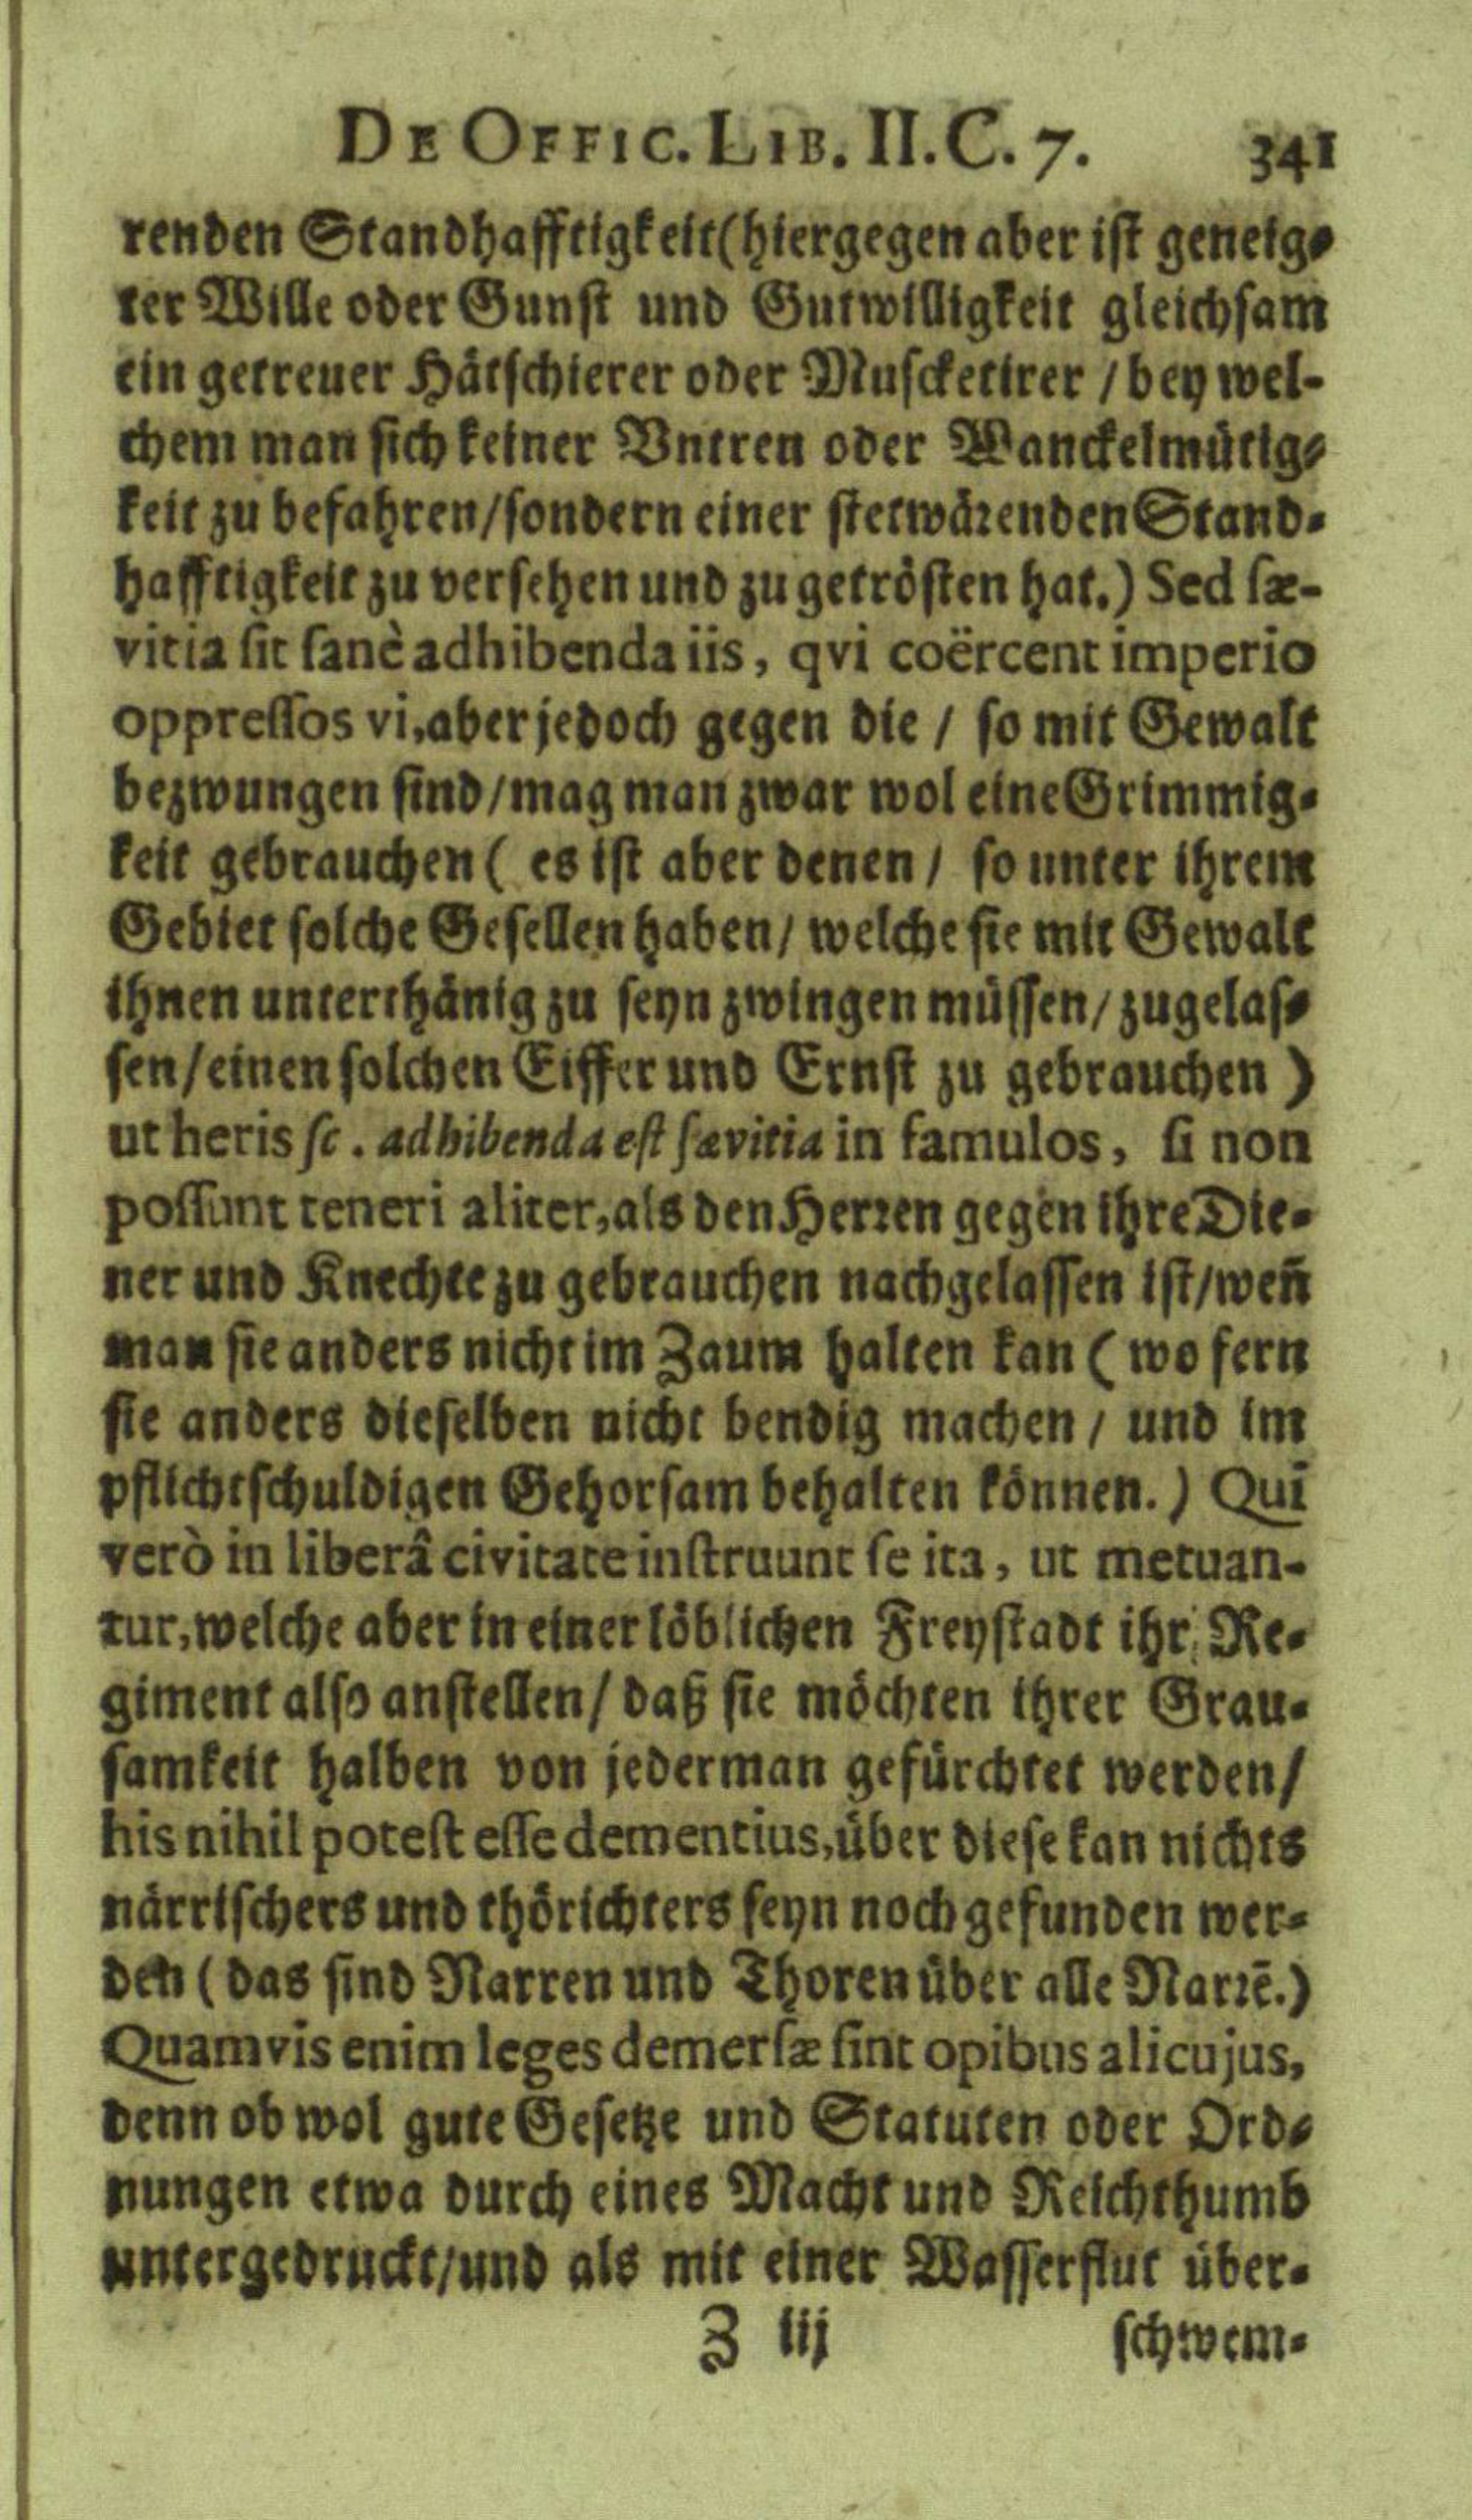 DE OFFIC. LIB. II. C. 7. 341
renden Standhafftigkeit (hiergegen aber ist geneig-
ter Wille oder Gunst und Gutwilligkeit gleichsam
ein getreuer Hätschierer oder Muscketirer / bey wel-
chem man sich keiner Vntren oder Wanckelmütig-
keit zu befahren / sondern einer stetwärenden Stand-
hafftigkeit zu versehen und zu getrösten hat.) Sed sæ-
vitia sit sanè adhibenda iis, qvi coërcent imperio
oppressos vi, aber jedoch gegen die / so mit Gewalt
bezwungen sind / mag man zwar wol eine Grimmig-
keit gebrauchen ( es ist aber denen / so unter ihrem
Gebiet solche Gesellen haben / welche sie mit Gewalt
ihnen unterthänig zu seyn zwingen müssen / zugelas-
sen / einen solchen Eiffer und Ernst zu gebrauchen )
ut heris sc. adhibenda est sævitia in famulos, si non
possunt teneri aliter, als den Herren gegen ihre Die-
ner und Knechte zu gebrauchen nachgelassen ist / weñ
man sie anders nicht im Zaum halten kan ( wo fern
sie anders dieselben nicht bendig machen / und im
pflichtschuldigen Gehorsam behalten können. ) Qui
verò in liberâ civitate instruunt se ita, ut metuan-
tur, welche aber in einer löblichen Freystadt ihr Re-
giment also anstellen / daß sie möchten ihrer Grau-
samkeit halben von jederman gefürchtet werden /
his nihil potest esse dementius, über diese kan nichts
närrischers und thörichters seyn noch gefunden wer-
den ( das sind Narren und Thoren über alle Narrē.)
Quamvis enim leges demersæ sint opibus alicujus,
denn ob wol gute Gesetze und Statuten oder Ord-
nungen etwa durch eines Macht und Reichthumb
untergedruckt / und als mit einer Wasserflut über-
Z iij schwem-